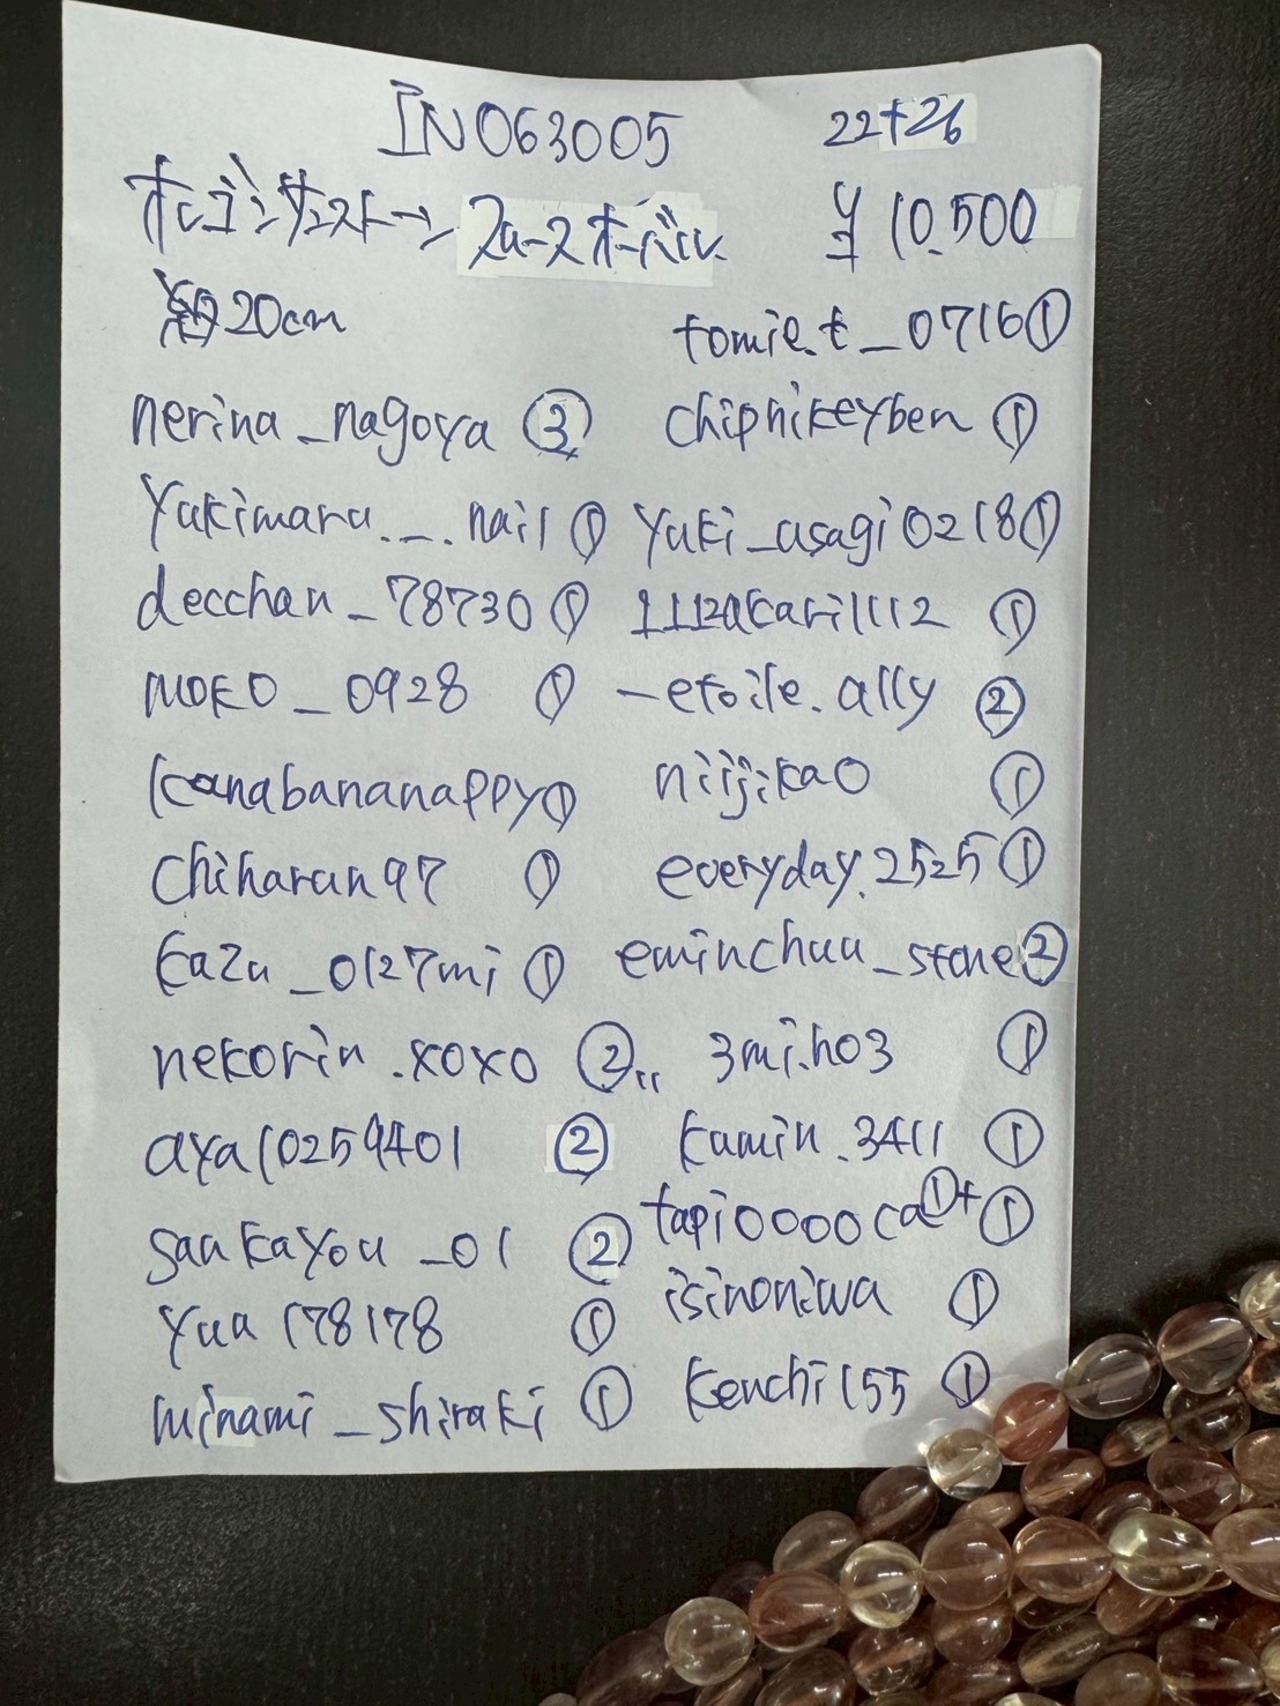 IN063005 22+26
オレゴンサンストーン スムースオーバル ¥10.500
約20cm
tomie.t_0716①
nerina_nagoya ③
chipnikeyben ①
yukimaru._.nail ①
yuki_asagi0218①
decchan_78730①
1112akari1112 ①
moko_0928 ①
_etoile.ally ②
kanabananappy①
niijikao ①
chiharun97 ①
everyday.2525①
kazu_0127mi ①
eminchuu_stone②
nekorin.xoxo ②
3mi.ho3 ①
aya10259401 ②
kumin.3411 ①
saakayou_01 ②
tapi0000ca①+①
yua178178 ①
isinoniwa ①
minami_shiraki ①
kenchi155 ①